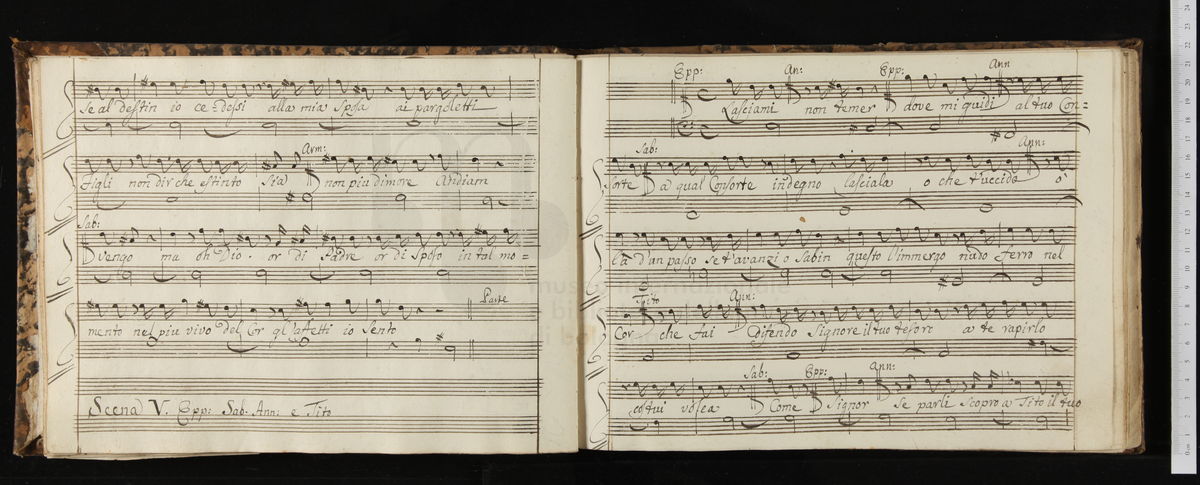 Se al destin io ce-dessi alla mia Sposa ai pargoletti
Arm:
Figli non dir che estinto Sia non più dimore Andiam
Sab:
vengo ma oh Dio. or di Padre or di Sposo in tal mo=
Parte
mento nel piu vivo del Cor gl'affetti io Sento
Scena V. Epp: Sab. Ann: e Tito
Epp: An: Epp: Ann
Lasciami non temer dove mi guidi al tuo Con=
Sab: Ann:
sorte a qual Consorte indegno lasciala o che t'uccido o
là d'un passo se t'avanzi o Sabin questo l'immergo nudo Ferro nel
Tito Ann:
Cor che fai Difendo Signore il tuo tesoro a te rapirlo
Sab: Epp: Ann:
costui volea Come Signor Se parli scopro a Tito il tuo